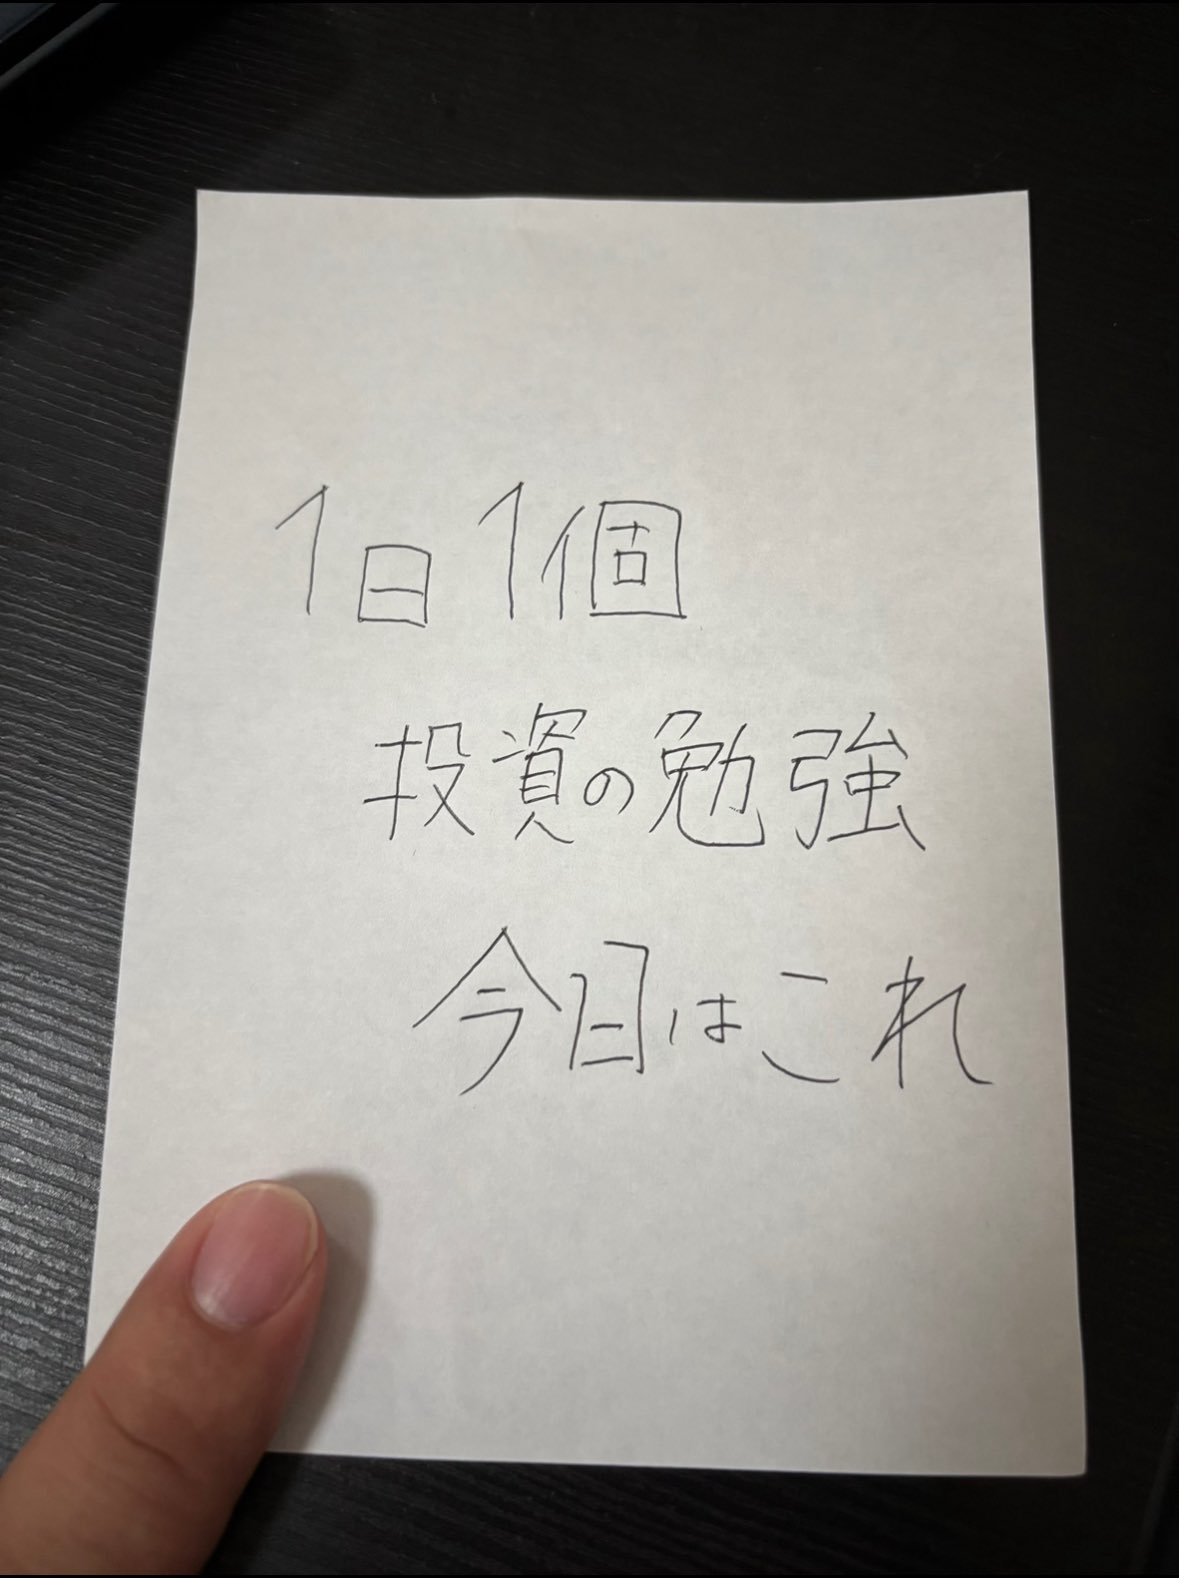 1日1個
投資の勉強
今日はこれ